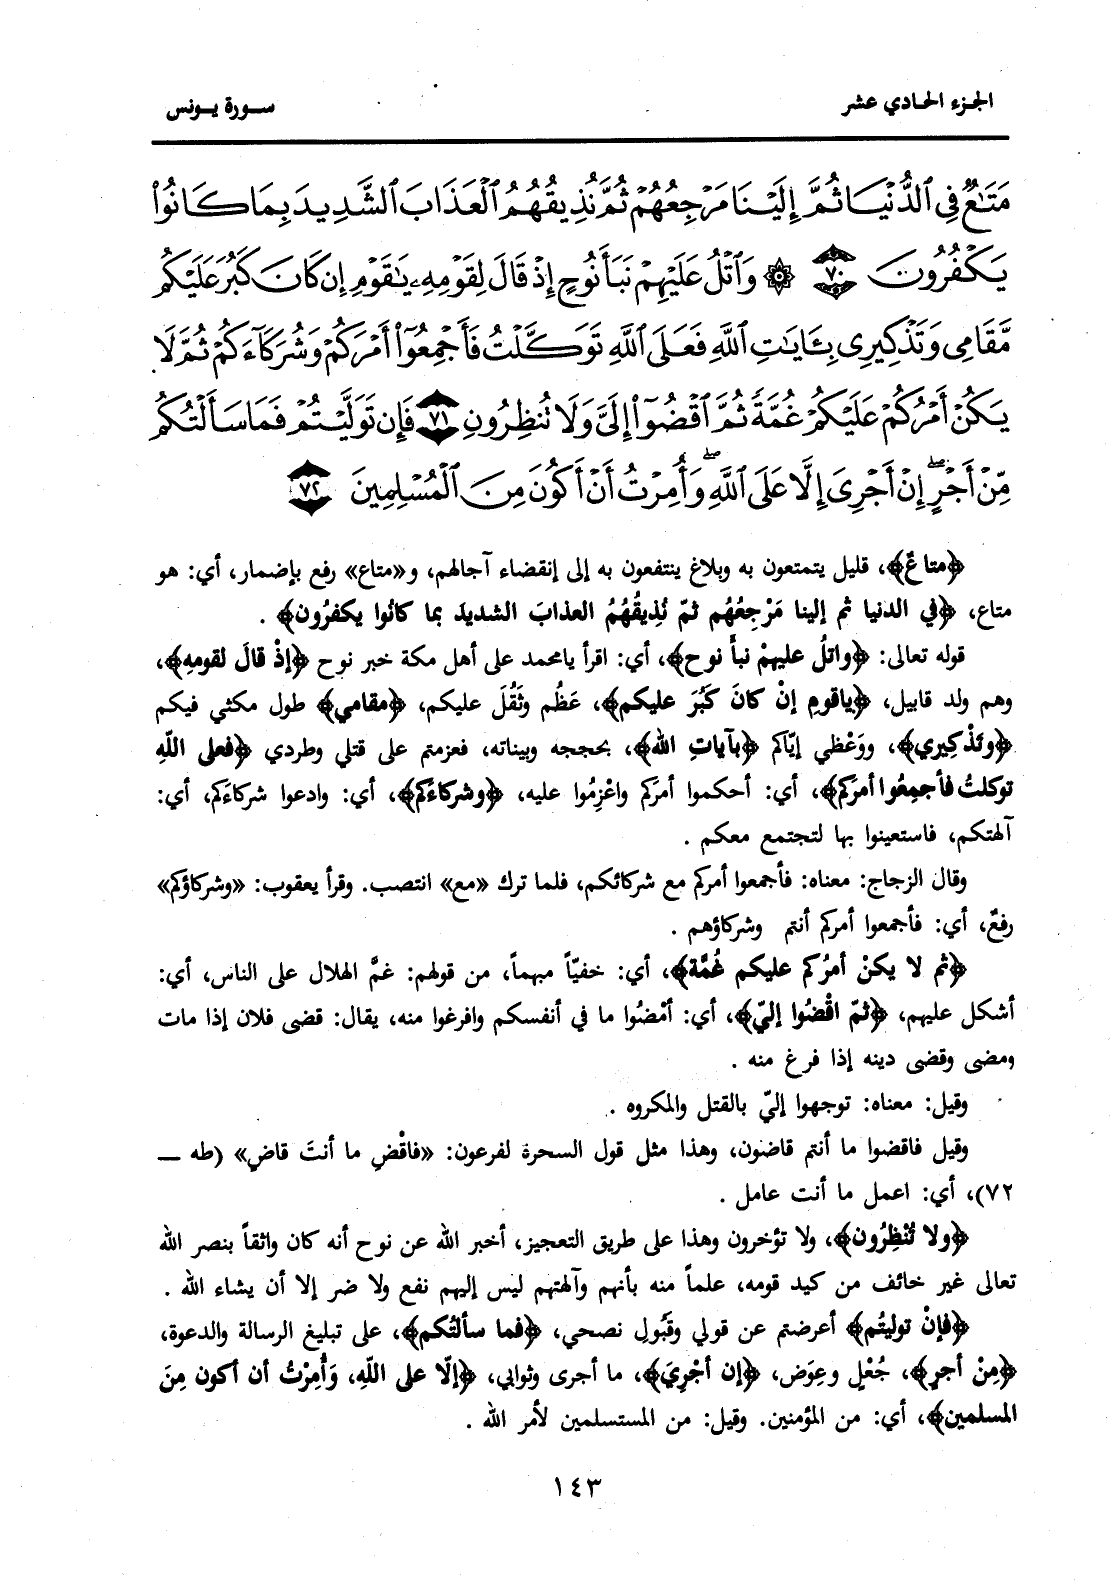 الجزء الحادي عشر
سورة يونس
مَتَـٰعٌ فِى ٱلدُّنْيَا ثُمَّ إِلَيْنَا مَرْجِعُهُمْ ثُمَّ نُذِيقُهُمُ ٱلْعَذَابَ ٱلشَّدِيدَ بِمَا كَانُوا۟
يَكْفُرُونَ ٧٠ ۞ وَٱتْلُ عَلَيْهِمْ نَبَأَ نُوحٍ إِذْ قَالَ لِقَوْمِهِۦ يَـٰقَوْمِ إِن كَانَ كَبُرَ عَلَيْكُم
مَّقَامِى وَتَذْكِيرِى بِـَٔايَـٰتِ ٱللَّهِ فَعَلَى ٱللَّهِ تَوَكَّلْتُ فَأَجْمِعُوٓا۟ أَمْرَكُمْ وَشُرَكَآءَكُمْ ثُمَّ لَا
يَكُنْ أَمْرُكُمْ عَلَيْكُمْ غُمَّةً ثُمَّ ٱقْضُوٓا۟ إِلَىَّ وَلَا تُنظِرُونِ ٧١ فَإِن تَوَلَّيْتُمْ فَمَا سَأَلْتُكُم
مِّنْ أَجْرٍ ۖ إِنْ أَجْرِىَ إِلَّا عَلَى ٱللَّهِ ۖ وَأُمِرْتُ أَنْ أَكُونَ مِنَ ٱلْمُسْلِمِينَ ٧٢
﴿متاعٌ﴾، قليل يتمتعون به وبلاغ ينتفعون به إلى إنقضاء آجالهم، و«متاع» رفع بإضمار، أي: هو
متاع، ﴿في الدنيا ثم إلينا مَرْجِعُهُم ثمّ نُذِيقُهُمُ العذابَ الشديدَ بما كانُوا يكفرُون﴾ .
قوله تعالى: ﴿واتلُ عليهمْ نبأ نوح﴾، أي: اقرأ يامحمد على أهل مكة خبر نوح ﴿إذْ قالَ لقومهِ﴾،
وهم ولد قابيل، ﴿ياقومِ إنْ كانَ كَبُرَ عليكم﴾، عَظُم وثَقُلَ عليكم، ﴿مقامي﴾ طول مكثي فيكم
﴿وتَذْكِيري﴾، ووَعْظي إيّاكم ﴿بآياتِ الله﴾، بحججه وبيناته، فعزمتم على قتلي وطردي ﴿فعلى اللّهِ
توكلتُ فأجمِعُوا أمرَكم﴾، أي: أحكموا أمرَكم واعْزِمُوا عليه، ﴿وشركاءَكم﴾، أي: وادعوا شركاءَكم، أي:
آلهتكم، فاستعينوا بها لتجتمع معكم .
وقال الزجاج: معناه: فأجمعوا أمركم مع شركائكم، فلما ترك «مع» انتصب. وقرأ يعقوب: «وشركاؤكم»
رفعٌ، أي: فأجمعوا أمركم أنتم وشركاؤهم .
﴿ثم لا يكنْ أمرُكم عليكم غُمَّة﴾، أي: خفيّاً مبهماً، من قولهم: غمَّ الهلال على الناس، أي:
أشكل عليهم، ﴿ثمّ اقْضُوا إليّ﴾، أي: أمْضُوا ما في أنفسكم وافرغوا منه، يقال: قضى فلان إذا مات
ومضى وقضى دينه إذا فرغ منه .
وقيل: معناه: توجهوا إليّ بالقتل والمكروه .
وقيل فاقضوا ما أنتم قاضون، وهذا مثل قول السحرة لفرعون: «فاقْضِ ما أنتَ قاضٍ» (طه —
٧٢)، أي: اعمل ما أنت عامل .
﴿ولا تُنْظِرُون﴾، ولا تؤخرون وهذا على طريق التعجيز، أخبر الله عن نوح أنه كان واثقاً بنصر الله
تعالى غير خائف من كيد قومه، علماً منه بأنهم وآلهتهم ليس إليهم نفع ولا ضر إلا أن يشاء الله .
﴿فإنْ توليتُم﴾ أعرضتم عن قولي وقَبُولِ نصحي، ﴿فما سألتُكم﴾، على تبليغ الرسالة والدعوة،
﴿مِنْ أجرٍ﴾، جُعْلٍ وعِوَض، ﴿إن أجْرِيَ﴾، ما أجرى وثوابي، ﴿إلّا على اللّهِ، وَأُمِرْتُ أن أكون مِنَ
المسلمين﴾، أي: من المؤمنين. وقيل: من المستسلمين لأمر الله .
١٤٣